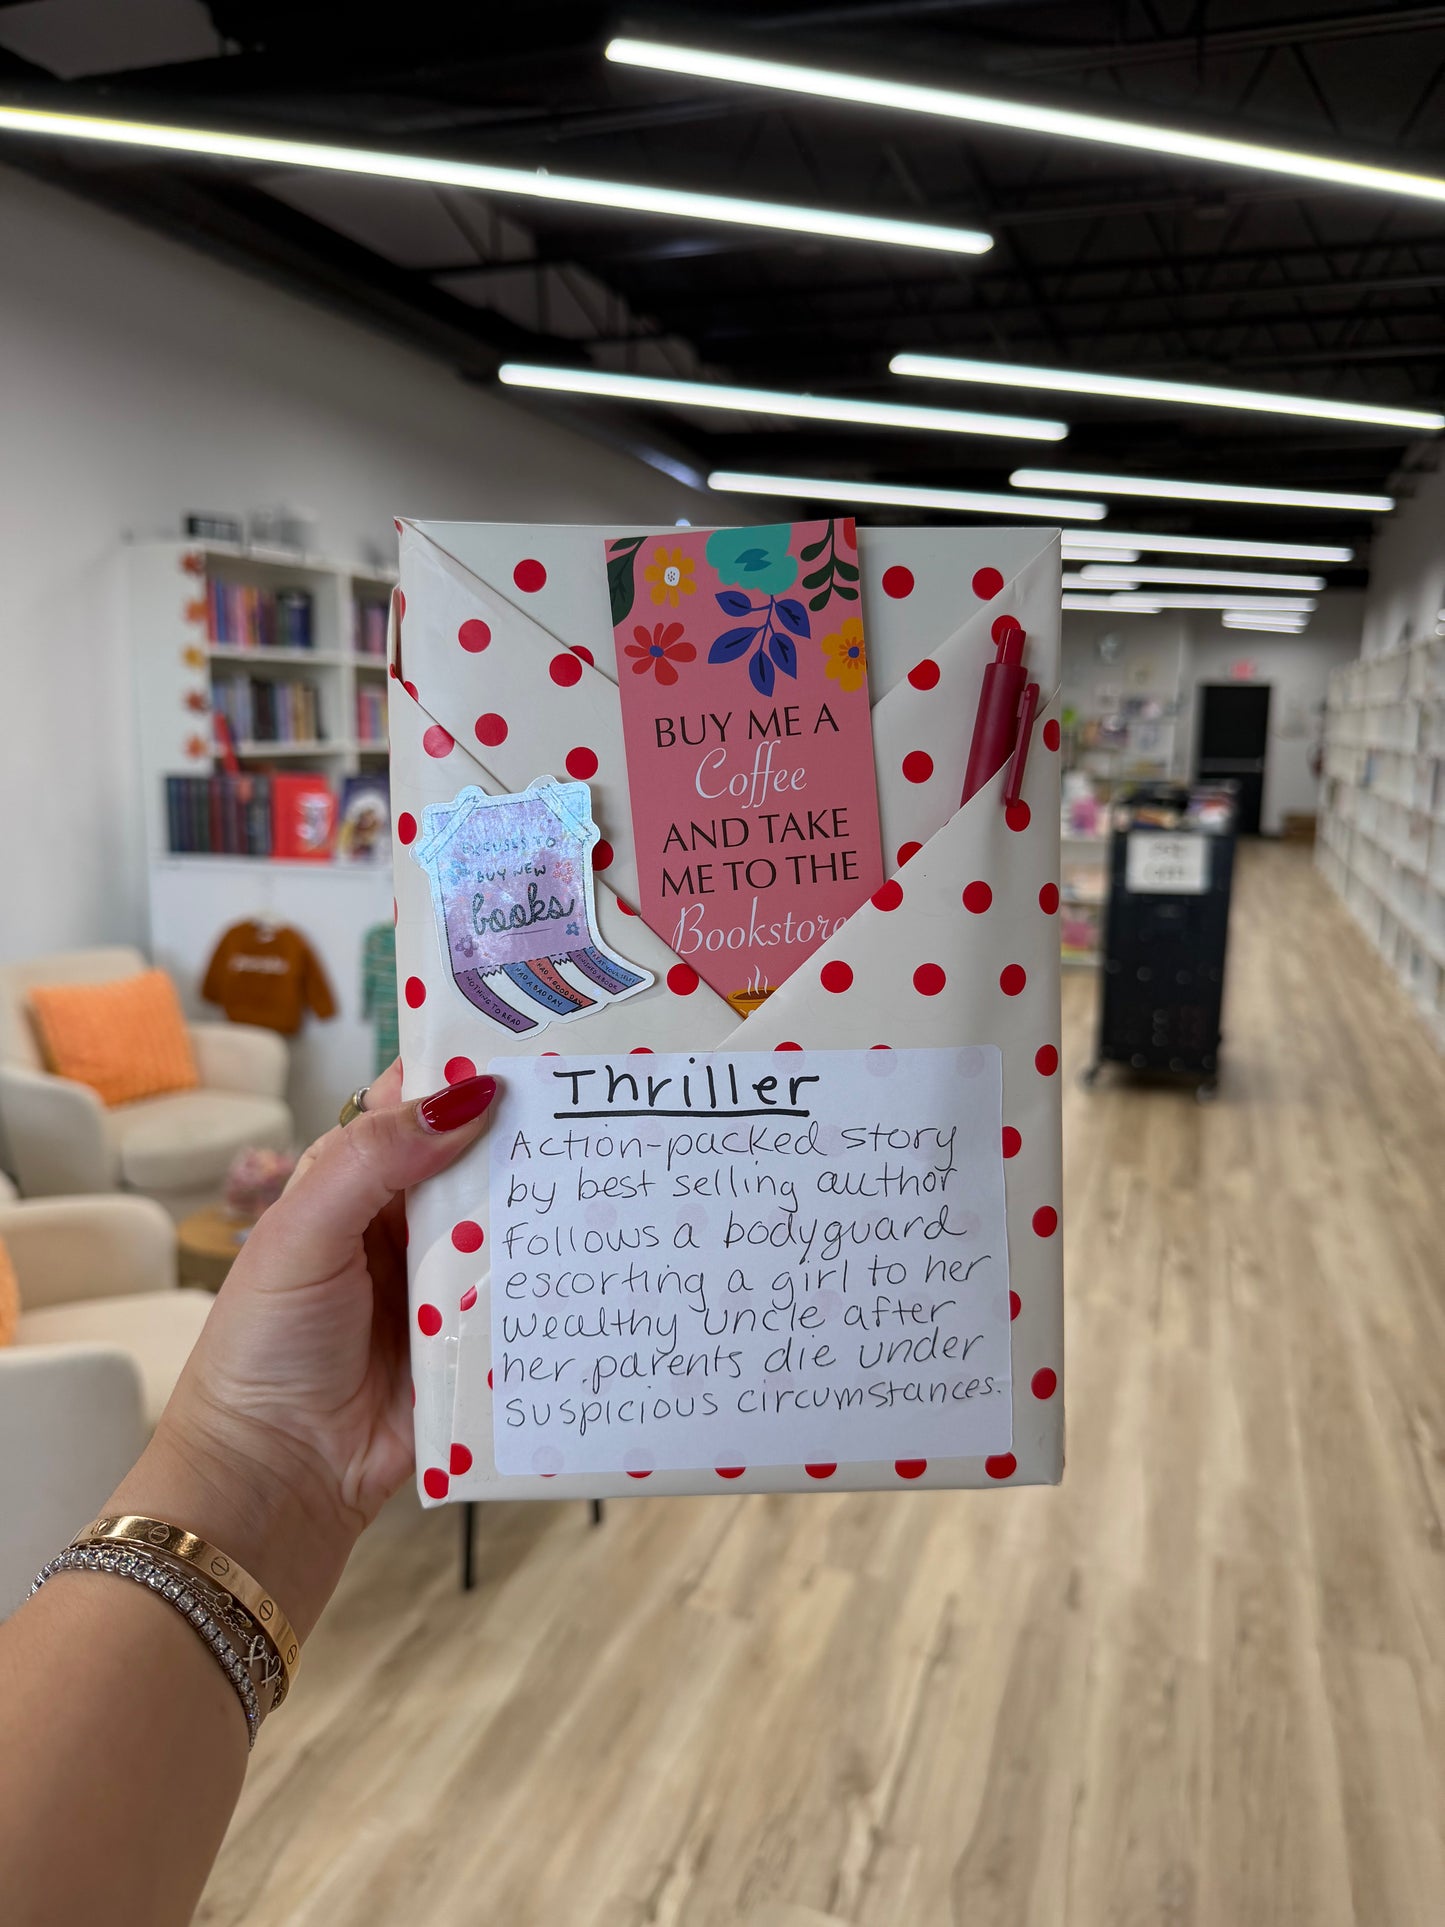 BUY ME A
Coffee
AND TAKE
ME TO THE
Bookstore
EXCUSES TO
BUY NEW
books
NOTHING TO READ
HAD A BAD DAY
HAD A GOOD DAY
FINISHED A BOOK
TREAT YOURSELF!
Thriller
Action-packed story
by best selling author
Follows a bodyguard
escorting a girl to her
wealthy uncle after
her parents die under
suspicious circumstances.